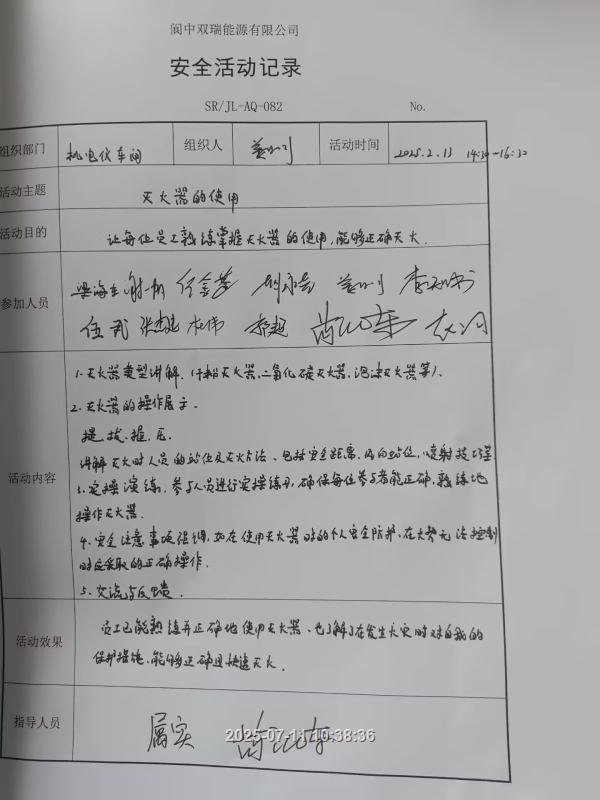 阆中双瑞能源有限公司
安全活动记录
SR/JL-AQ-082 No.
组织部门 机电仪车间 组织人 活动时间 2025.2.13 14:30-16:30
活动主题 灭火器的使用
活动目的 让每位员工熟练掌握灭火器的使用,能够正确灭火.
参加人员
伍武 张杰
活动内容
1.灭火器类型讲解.(干粉灭火器,二氧化碳灭火器,泡沫灭火器等).
2.灭火器的操作展示.
提.拔.握.压.
讲解灭火时人员的站位及灭火方法、包括安全距离、风向站位,喷射技巧等
3.实操演练.参与人员进行实操练习,确保每位参与者能正确.熟练地
操作灭火器.
4.安全注意事项强调,如在使用灭火器时的个人安全防护,在火势无法控制
时应采取的正确操作.
5.交流与反馈.
活动效果
员工已能熟练并正确地使用灭火器、也了解了在发生火灾时对自我的
保护措施,能够正确且快速灭火.
指导人员 属实
2025-07-11 10:38:36